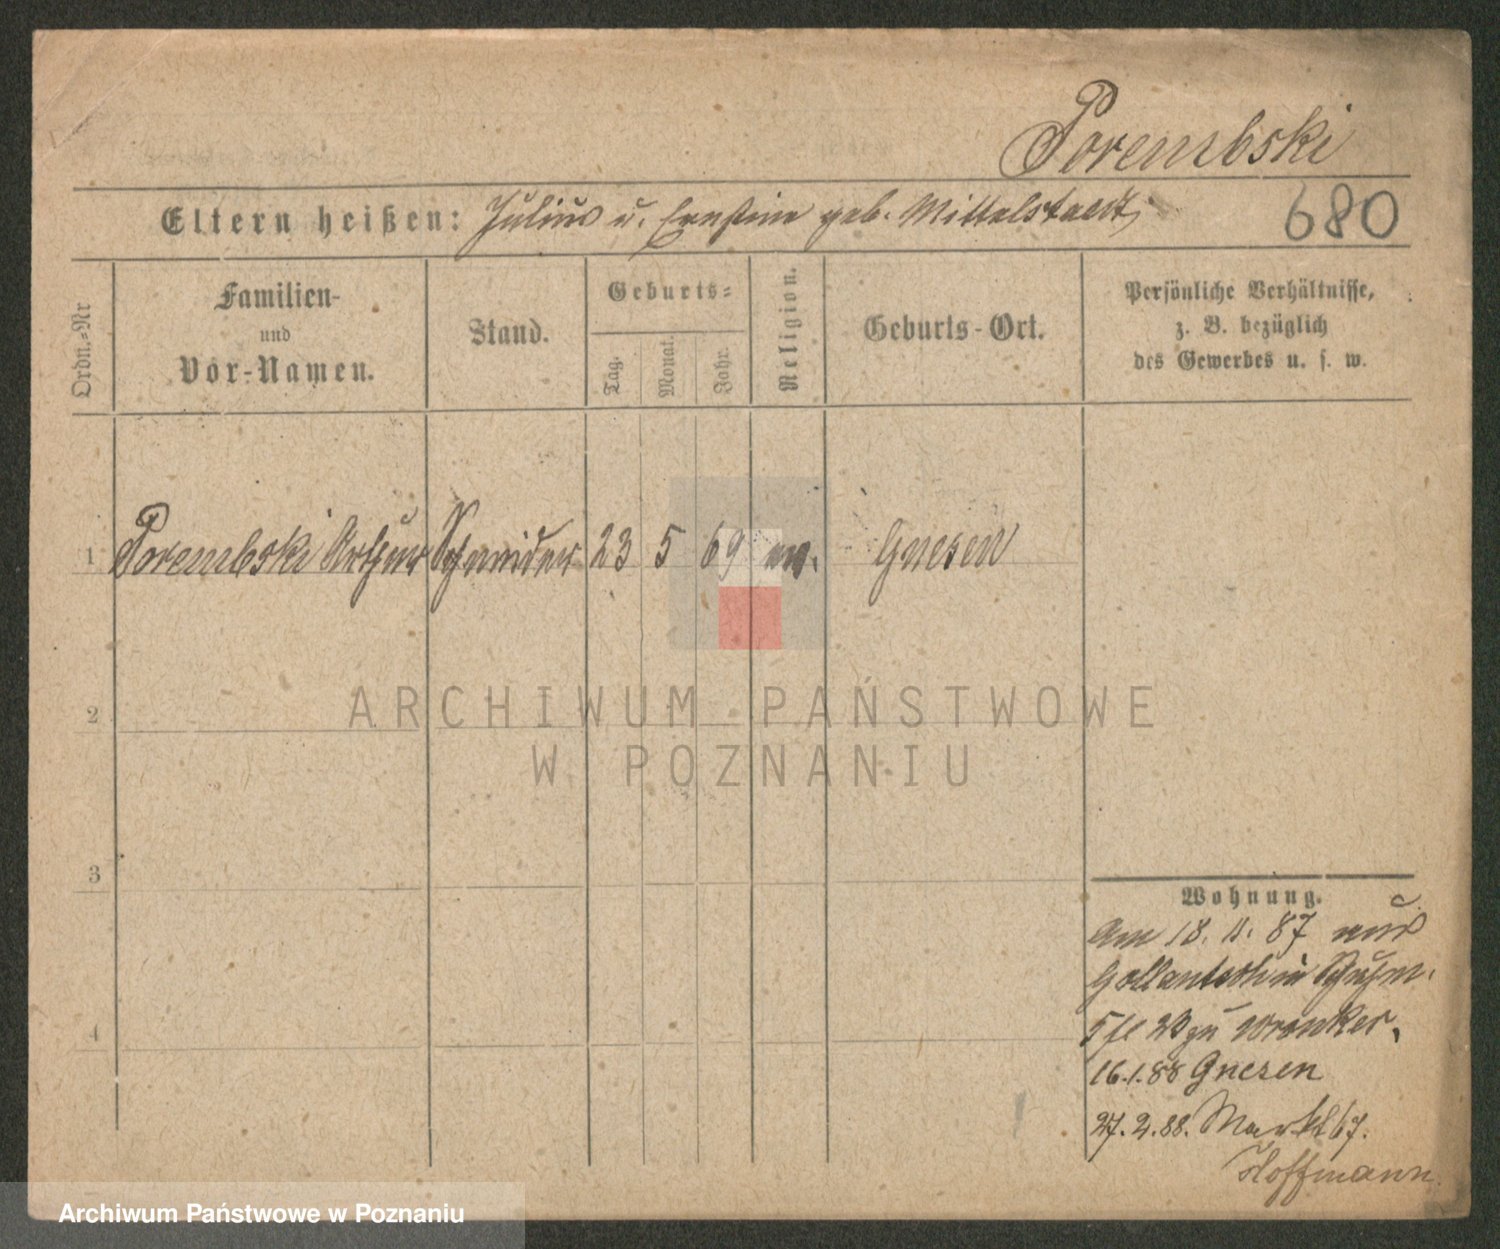 Porembski
Eltern heißen: Julius u. Ernstine geb. Mittelstaedt
680
Ordn.-Nr
Familien-
und
Vor-Namen.
Stand.
Geburts-
Tag.
Monat.
Jahr.
Religion.
Geburts-Ort.
Persönliche Verhältnisse,
z. B. bezüglich
des Gewerbes u. s. w.
1 Porembski Arthur Schneider 23 5 69 ev. Gnesen
2
3
4
Wohnung.
Am 18. 11. 87 aus
Gollantsch in
zu Wronker,
16.1.88 Gnesen
27.2.88. Markt 67.
Hoffmann
ARCHIWUM PAŃSTWOWE
W POZNANIU
Archiwum Państwowe w Poznaniu